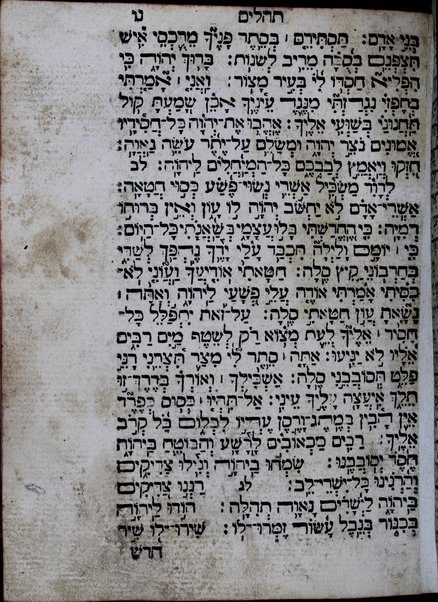 תהלים נו
בְּנֵי אָדָם׃ תַּסְתִּירֵם ׀ בְּסֵתֶר פָּנֶיךָ מֵרֻכְסֵי אִישׁ
תִּצְפְּנֵם בְּסֻכָּה מֵרִיב לְשֹׁנוֹת׃ בָּרוּךְ יְהוָה כִּי
הִפְלִיא חַסְדּוֹ לִי בְּעִיר מָצוֹר׃ וַאֲנִי ׀ אָמַרְתִּי
בְחָפְזִי נִגְרַזְתִּי מִנֶּגֶד עֵינֶיךָ אָכֵן שָׁמַעְתָּ קוֹל
תַּחֲנוּנַי בְּשַׁוְּעִי אֵלֶיךָ׃ אֶהֱבוּ אֶת־יְהוָה כָּל־חֲסִידָיו
אֱמוּנִים נֹצֵר יְהוָה וּמְשַׁלֵּם עַל־יֶתֶר עֹשֵׂה גַאֲוָה׃
חִזְקוּ וְיַאֲמֵץ לְבַבְכֶם כָּל־הַמְיַחֲלִים לַיהוָה׃ לב
לְדָוִד מַשְׂכִּיל אַשְׁרֵי נְשׂוּי־פֶּשַׁע כְּסוּי חֲטָאָה׃
אַשְׁרֵי־אָדָם לֹא יַחְשֹׁב יְהוָה לוֹ עָוֹן וְאֵין בְּרוּחוֹ
רְמִיָּה׃ כִּי־הֶחֱרַשְׁתִּי בָּלוּ עֲצָמָי בְּשַׁאֲגָתִי כָּל־הַיּוֹם׃
כִּי ׀ יוֹמָם וָלַיְלָה תִּכְבַּד עָלַי יָדֶךָ נֶהְפַּךְ לְשַׁדִּי
בְּחַרְבֹנֵי קַיִץ סֶלָה׃ חַטָּאתִי אוֹדִיעֲךָ וַעֲוֹנִי לֹא־
כִסִּיתִי אָמַרְתִּי אוֹדֶה עֲלֵי פְשָׁעַי לַיהוָה וְאַתָּה ׀
נָשָׂאתָ עֲוֹן חַטָּאתִי סֶלָה׃ עַל־זֹאת יִתְפַּלֵּל כָּל־
חָסִיד ׀ אֵלֶיךָ לְעֵת מְצֹא רַק לְשֵׁטֶף מַיִם רַבִּים
אֵלָיו לֹא יַגִּיעוּ׃ אַתָּה ׀ סֵתֶר לִי מִצַּר תִּצְּרֵנִי רָנֵּי
פַלֵּט תְּסוֹבְבֵנִי סֶלָה׃ אַשְׂכִּילְךָ ׀ וְאוֹרְךָ בְּדֶרֶךְ־זוּ
תֵלֵךְ אִיעֲצָה עָלֶיךָ עֵינִי׃ אַל־תִּהְיוּ ׀ כְּסוּס כְּפֶרֶד
אֵין הָבִין בְּמֶתֶג־וָרֶסֶן עֶדְיוֹ לִבְלוֹם בַּל קְרֹב
אֵלֶיךָ׃ רַבִּים מַכְאוֹבִים לָרָשָׁע וְהַבּוֹטֵחַ בַּיהוָה
חֶסֶד יְסוֹבְבֶנּוּ׃ שִׂמְחוּ בַיהוָה וְגִילוּ צַדִּיקִים
וְהַרְנִינוּ כָּל־יִשְׁרֵי־לֵב׃ לג רַנְּנוּ צַדִּיקִים
בַּיהוָה לַיְשָׁרִים נָאוָה תְהִלָּה׃ הוֹדוּ לַיהוָה
בְּכִנּוֹר בְּנֵבֶל עָשׂוֹר זַמְּרוּ־לוֹ׃ שִׁירוּ־לוֹ שִׁיר
חדש